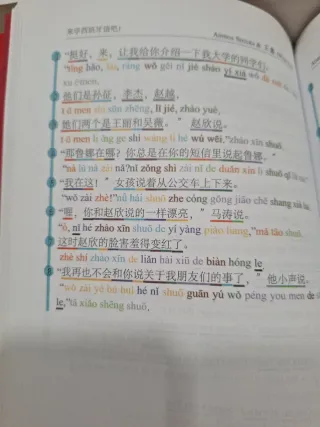 学西班牙语吧!
“挺好，来，让我给你介绍一下我大学的同学们。
“tǐng hǎo, lái, ràng wǒ gěi nǐ jiè shào yí xià wǒ dà xué
他们是孙征，李杰，赵越，
tā men shì sūn zhēng, lǐ jié, zhào yuè,
她们两个是王丽和吴薇。” 赵欣说。
tā men liǎng ge shì wáng lì hé wú wēi,”zhào xīn shuō.
“那鲁娜在哪？你总是在你的短信里说起鲁娜。”
“nà lǔ nà zài nǎ?nǐ zǒng shì zài nǐ de duǎn xìn lǐ shuō qǐ lǔ
“我在这！”女孩说着从公交车上下来。
“wǒ zài zhè!”nǚ hái shuō zhe cóng gōng jiāo chē shang xià lai.
“喔，你和赵欣说的一样漂亮，”马涛说。
“ō, nǐ hé zhào xīn shuō de yí yàng piào liang,”mǎ tāo shuō.
这时赵欣的脸害羞得变红了。
zhè shí zhào xīn de liǎn hài xiū de biàn hóng le
“我再也不会和你说关于我朋友们的事了，”他小声说。
“wǒ zài yě bú huì hé nǐ shuō guān yú wǒ péng you men de
le,”tā xiǎo shēng shuō,